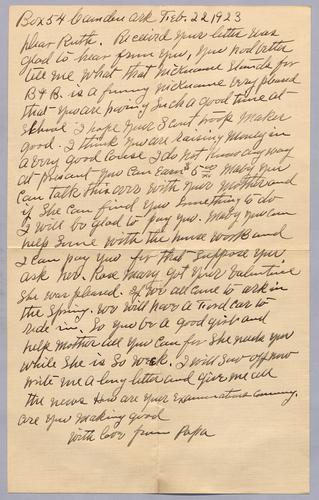 Box 54 Camden ark Feb. 22 1923
Dear Ruth. Recieved your letter was
glad to hear from you, you had better
tell me what that nickname stands for
B & B. is a funny nickname very pleased
that you are having such a good time at
School I hope your Scout troop makes
good. I think you are raising money in
a very good cause I do not know any way
at present you can Earn $5 00 Mary you
can talk this over with your Mother and
if She can find you something to do
I will be glad to pay you. Mary you can
help some with the house work and
I can pay you for that suppose you
ask her. Rose Mary got your valentine
She was pleased. If we all come to ark in
the Spring. we will have a Ford car to
ride in. So you be a good girl and
help mother all you can for She needs you
while She is So weak. I will now
write me a long letter and give me all
the news How are your Examinations Coming.
are you making good
with love from Papa